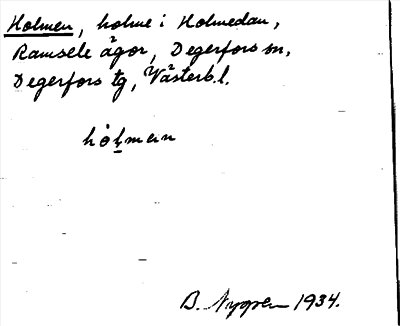 Holmen, holme i Holmedan,
Ramsele ägor, Degerfors sn,
Degerfors tg, Västerb. l.
hȯl̠men
B. Nygren 1934.